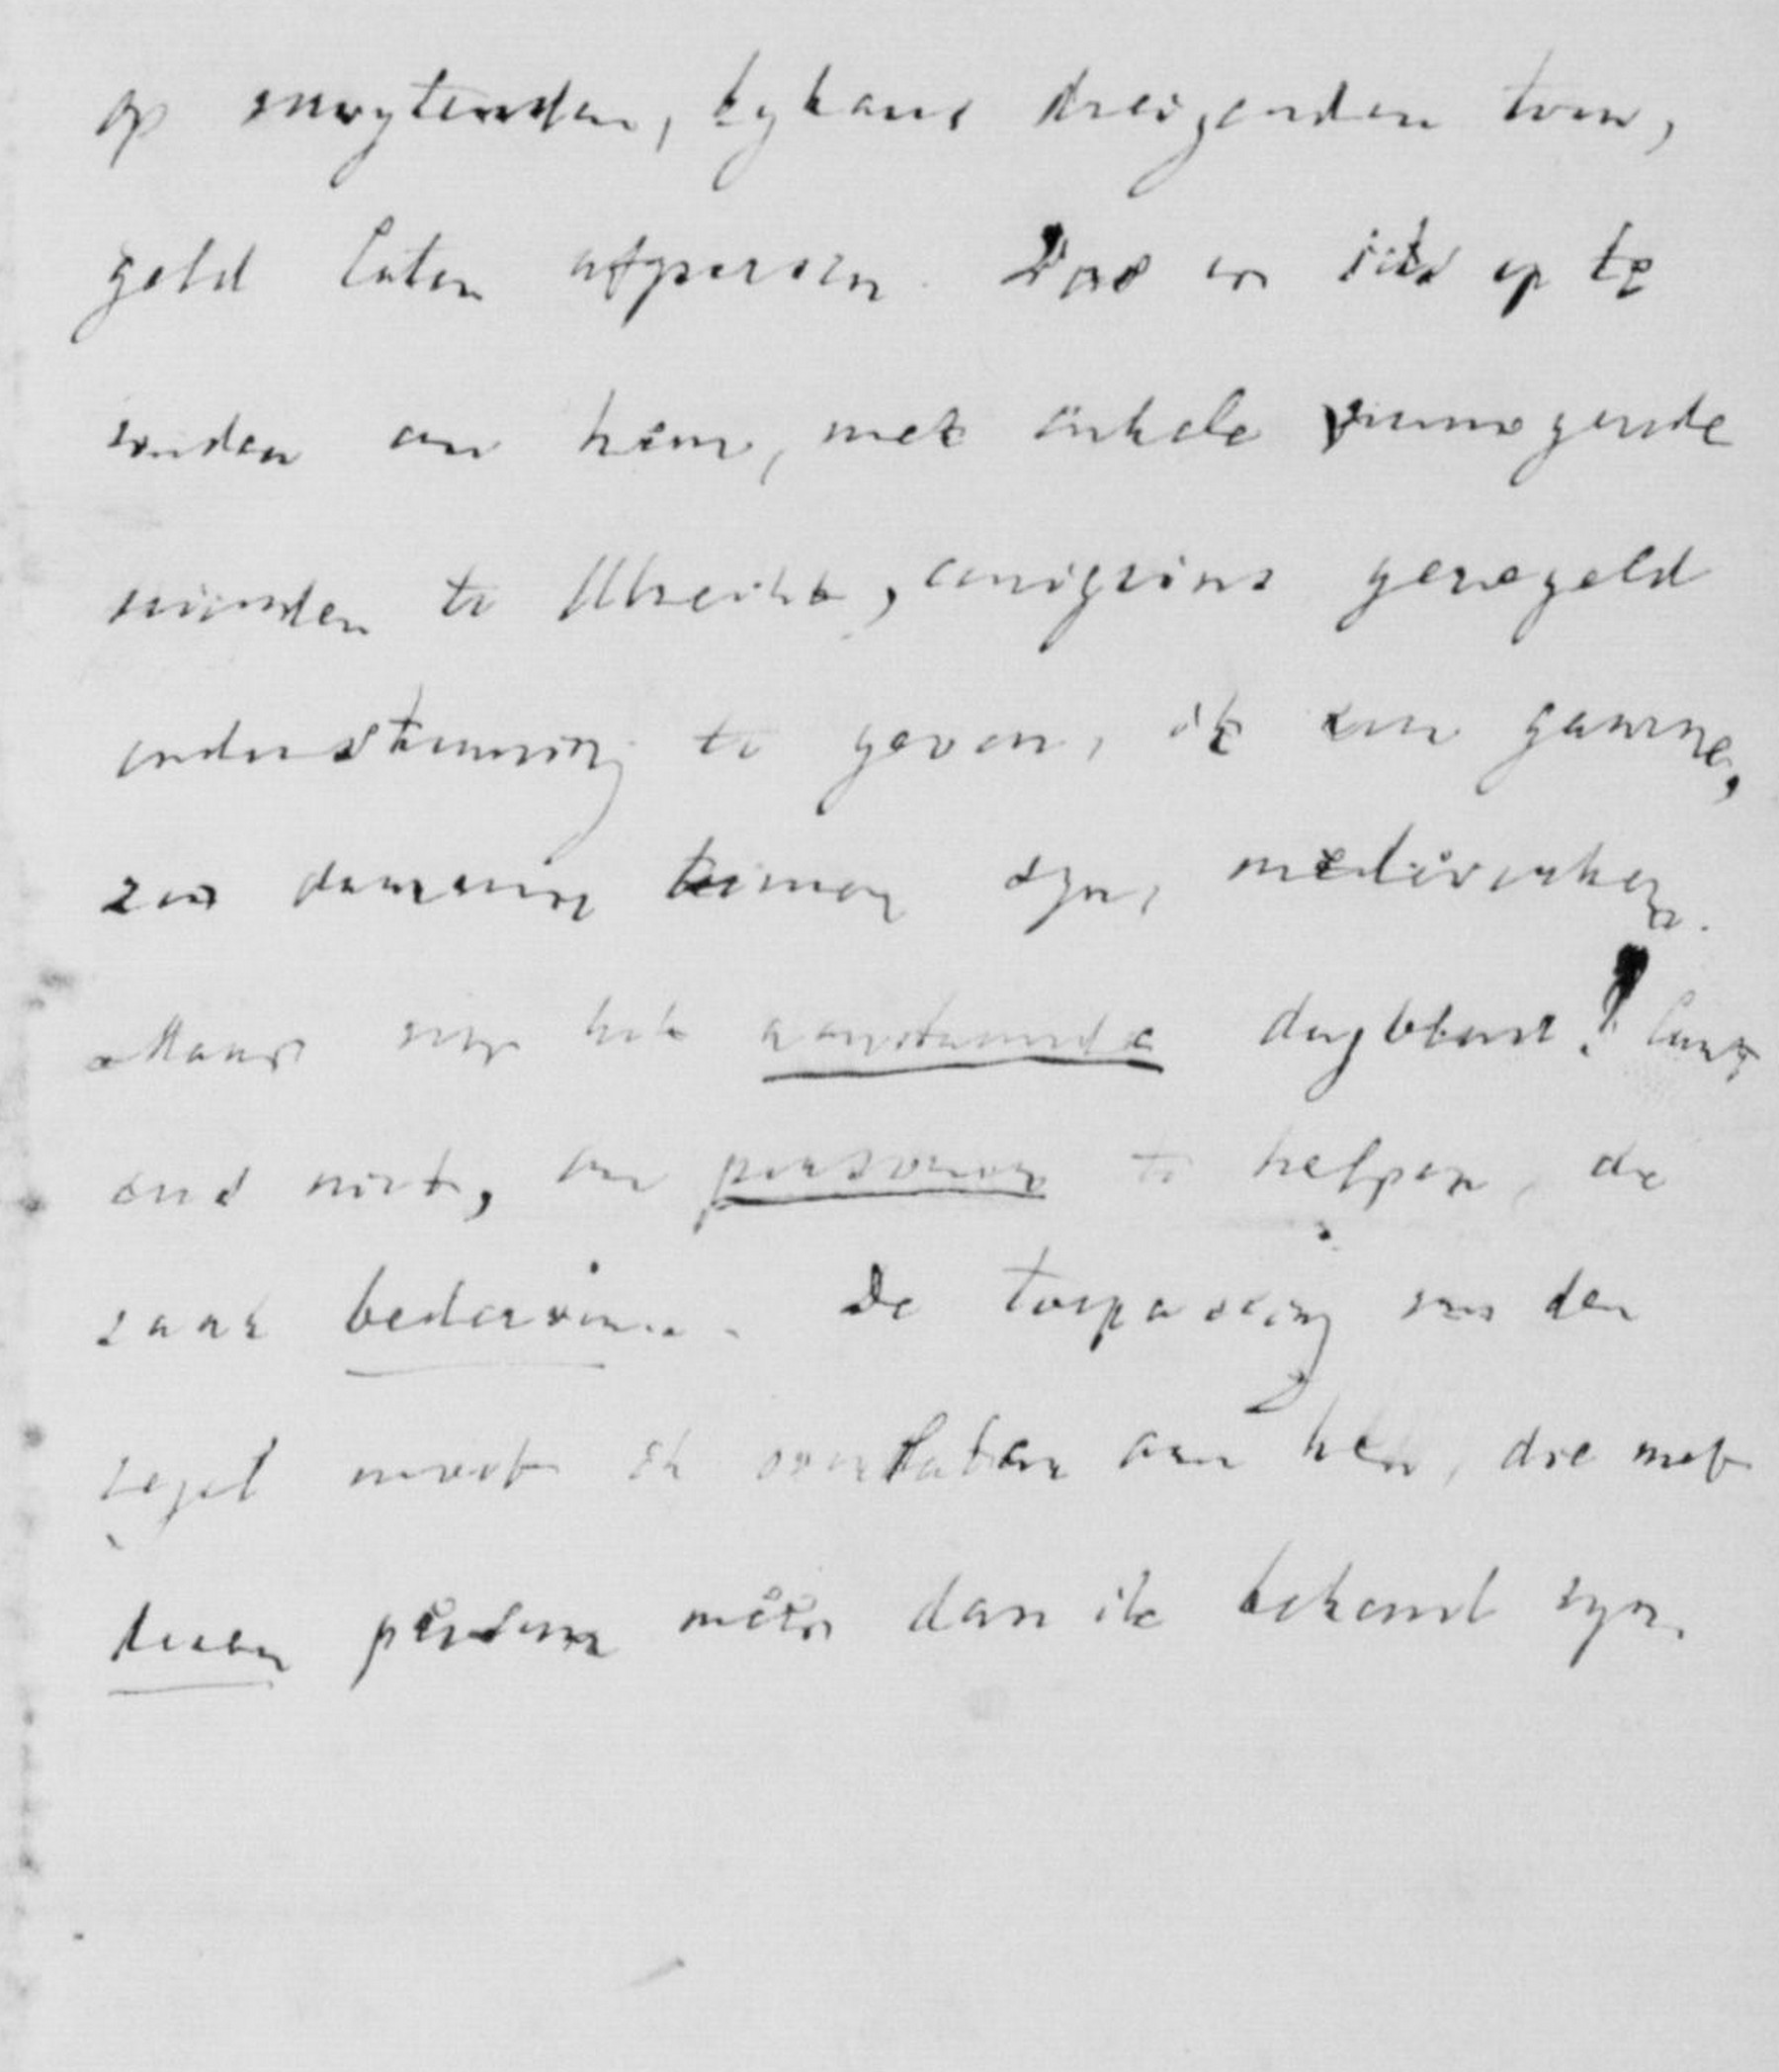 op verwytenden, bykans dreigenden toon,
geld laten afpersen. Was er iets op te
vinden om hem, met enkele vermogende
vrienden te Utrecht, eenigzins geregeld
ondersteuning te geven, ik zou gaarne,
zoo daarvan termen zyn, medewerken.
Maar voor het aanstaande dagblad! Laat
ons niet, om personen te helpen, de
zaak bederven. De toepassing van den
regel moet ik overlaten aan hen, die met
dezen persoon meer dan ik bekend zyn.